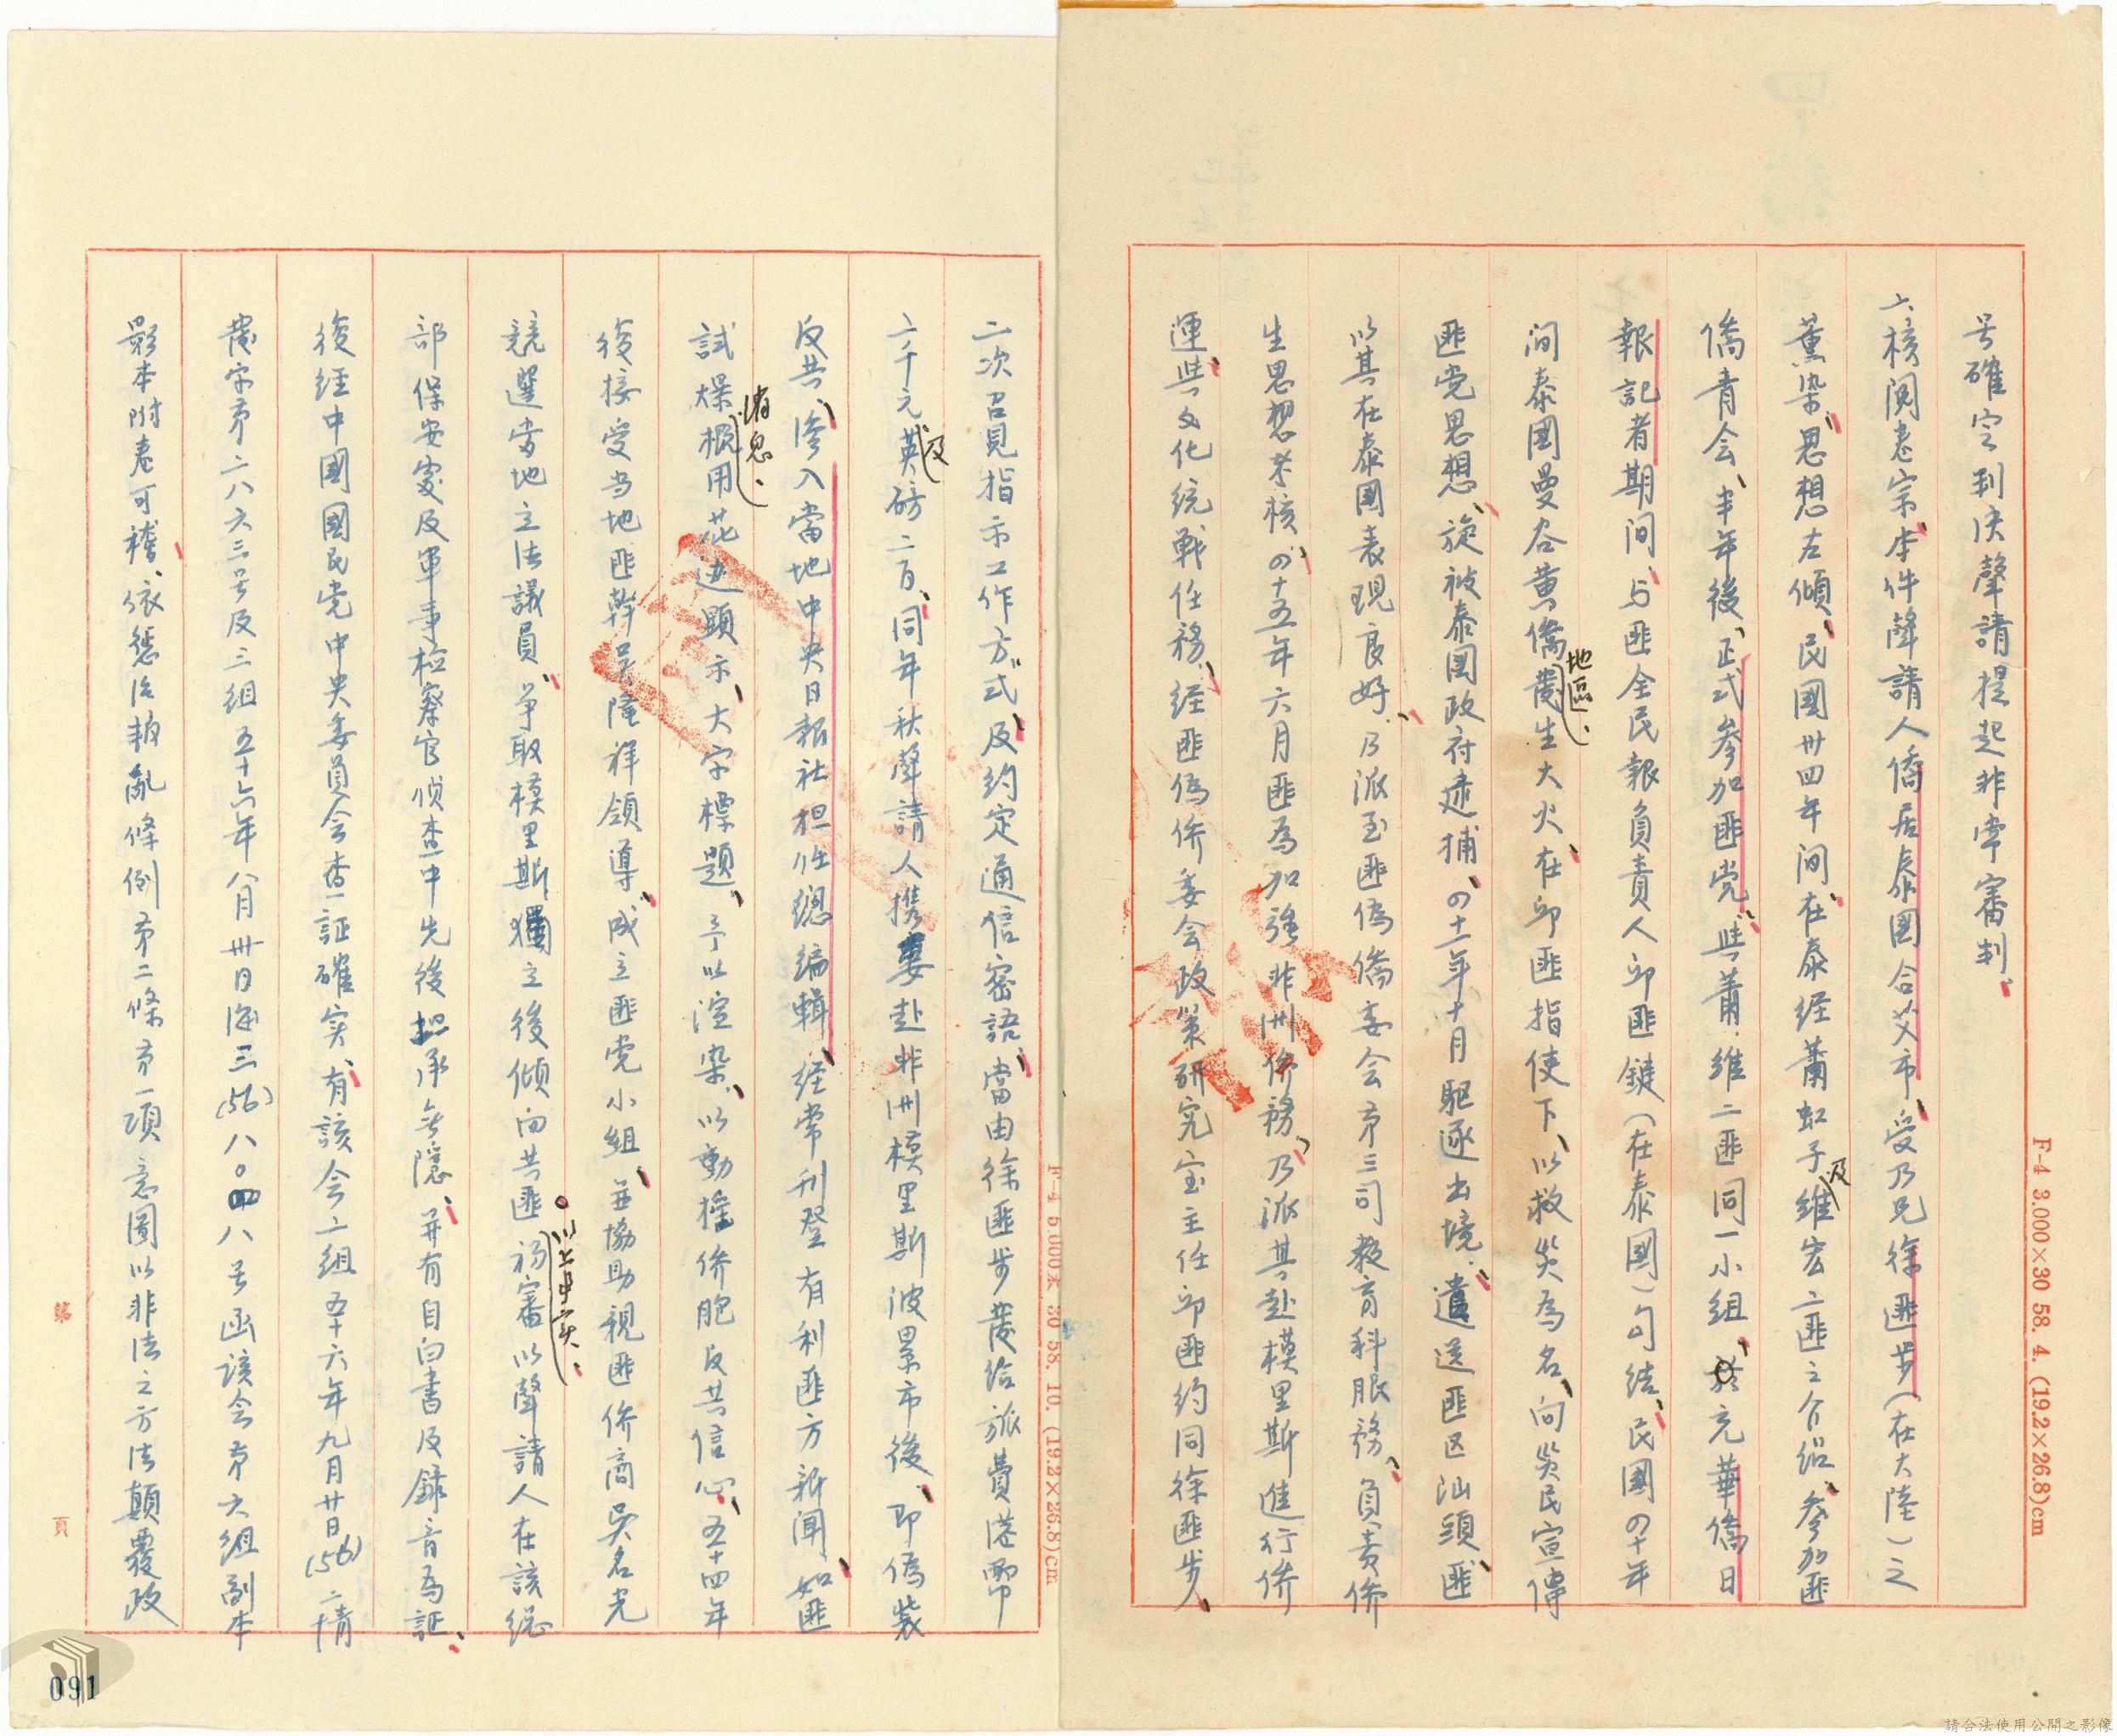 号確定判決聲請提起非常審判、
六、核閱卷宗、本件聲請人僑居泰國合艾市、受乃兄徐匪步(在大陸)之
薰染、思想左傾、民國卅四年間、在泰經蕭虹子及維宏二匪之介紹、參加匪
僑青会、半年後、正式參加匪党、與蕭、維二匪同一小組、充華僑日
報記者期间、与匪全民報負責人邱匪鍵(在泰國)勾結、民國四十年
间泰國曼谷黄僑地區、發生大火、在邱匪指使下、以救災為名、向災民宣傳
匪党思想、旋被泰国政府逮捕、四十一年十月驅逐出境、遣送匪区汕頭、匪
以其在泰國表現良好、乃派至匪偽僑委会第三司教育科服務、負責僑
生思想考核、四十五年六月匪為加強非洲僑務、乃派其赴模里斯進行僑
運與文化統戰任務、経匪偽僑委会政策研究室主任邱匪約同徐匪步、
二次召見指示工作方式、及約定通信密語、當由徐匪步發給旅費港幣
二千元及英磅二百、同年秋聲請人携妻赴非洲模里斯波累市後、即偽裝
反共、滲入當地中央日報社担任總編輯、経常刊登有利匪方新聞、如匪
試爆消息、概用花边顕示、大字標題、予以渲染、以動搖僑胞反共信心、五十四年
後接受当地匪幹吳隆祥領導、成立匪党小組、並協助親匪僑商吳名光
競選当地立法議員、爭取模里斯獨立後傾向共匪。以上事实、初審以聲請人在該総
部保安處及軍事检察官偵查中先後担承無隱、并有自白書及錄音為証、
後經中國國民党中央委員会查証確实、有該会二組五十六年九月廿日(56)二情
發字第二八六三号及三組五十六年八月卅日海三(56)八〇四八号函該会第六組副本
影本附卷可稽、依懲治叛亂條例第二條第一項意圖以非法之方法顛覆政
第
頁
F-4 3.000×30 58. 4. (19.2×26.8)cm
F-4 5.000本 30 58. 10. (19.2×26.8)cm
091
請合法使用公開之影像